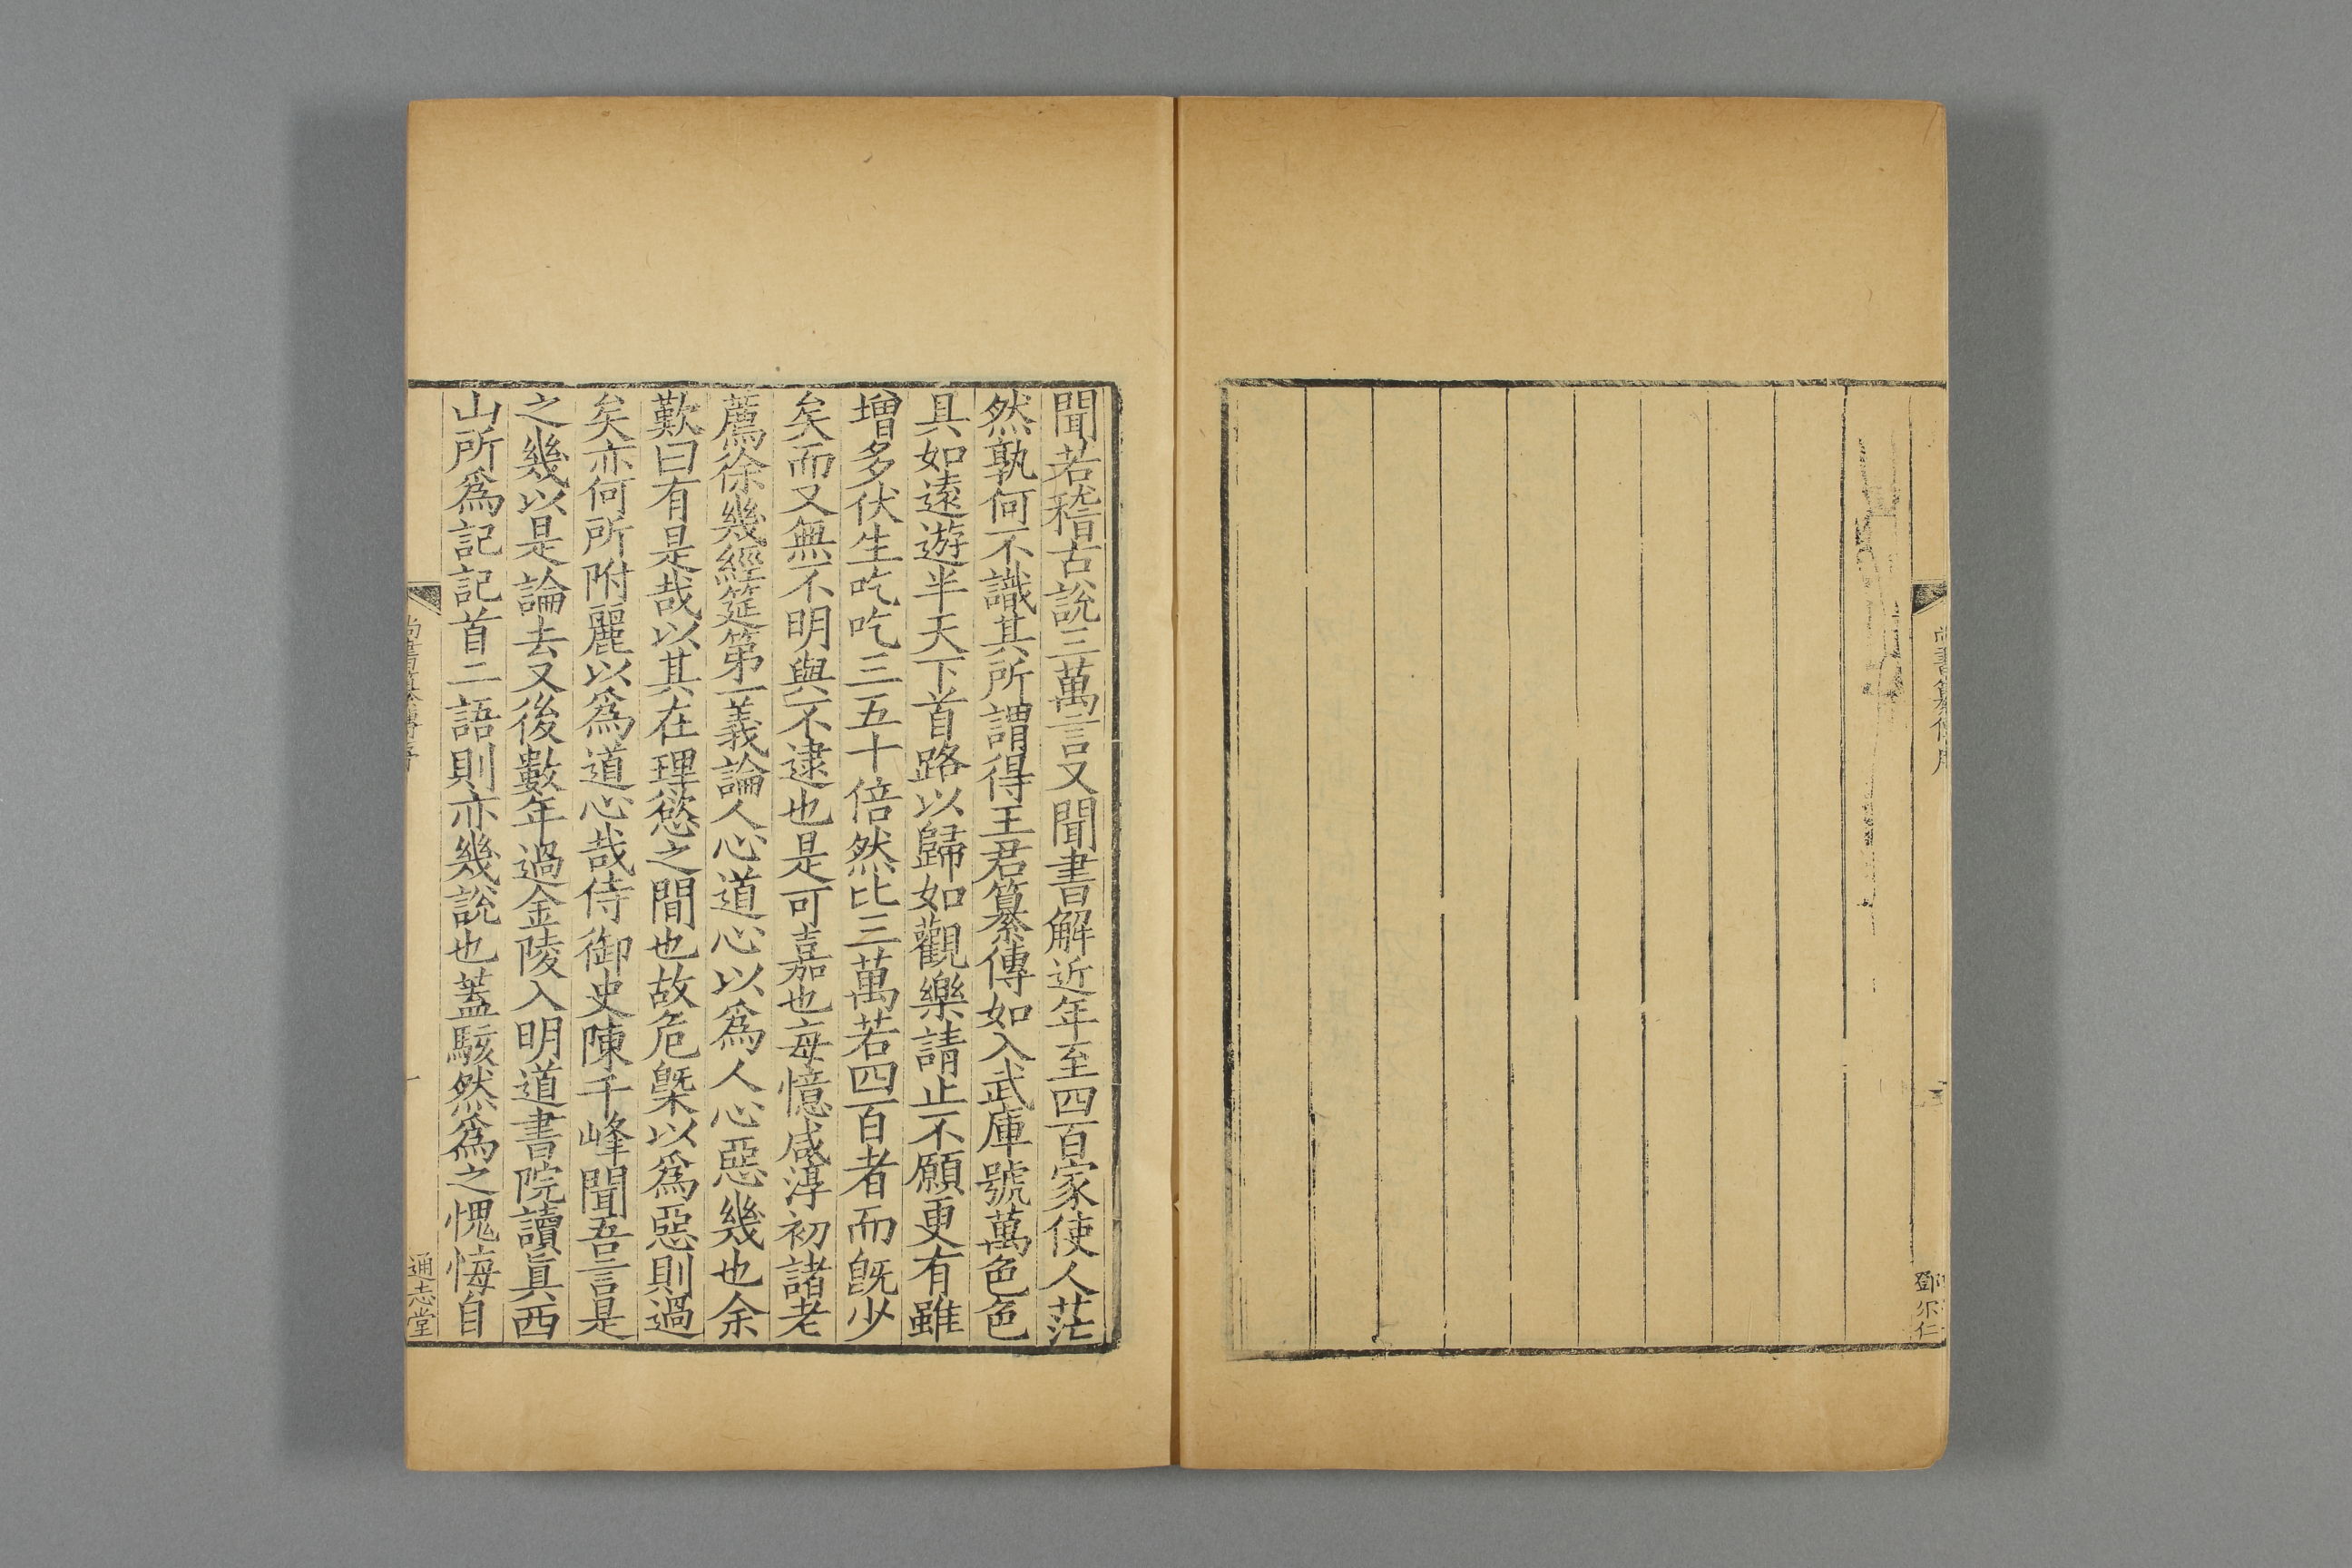 尚書纂傳序
鄧尔仁
聞若稽古說三萬言又聞書解近年至四百家使人茫
然孰何不識其所謂得王君纂傳如入武庫號萬色色
具如遠遊半天下首路以歸如觀樂請止不願更有雖
增多伏生吃吃三五十倍然比三萬若四百者而旣少
矣而又無不明與不逮也是可嘉也每憶咸淳初諸老
薦徐幾經筵第一義論人心道心以爲人心惡幾也余
歎曰有是哉以其在理慾之間也故危槩以爲惡則過
矣亦何所附麗以爲道心哉侍御史陳千峰聞吾言是
之幾以是論去又後數年過金陵入明道書院讀眞西
山所爲記記首二語則亦幾說也蓋駭然爲之愧悔自
尚書纂傳序
一
通志堂